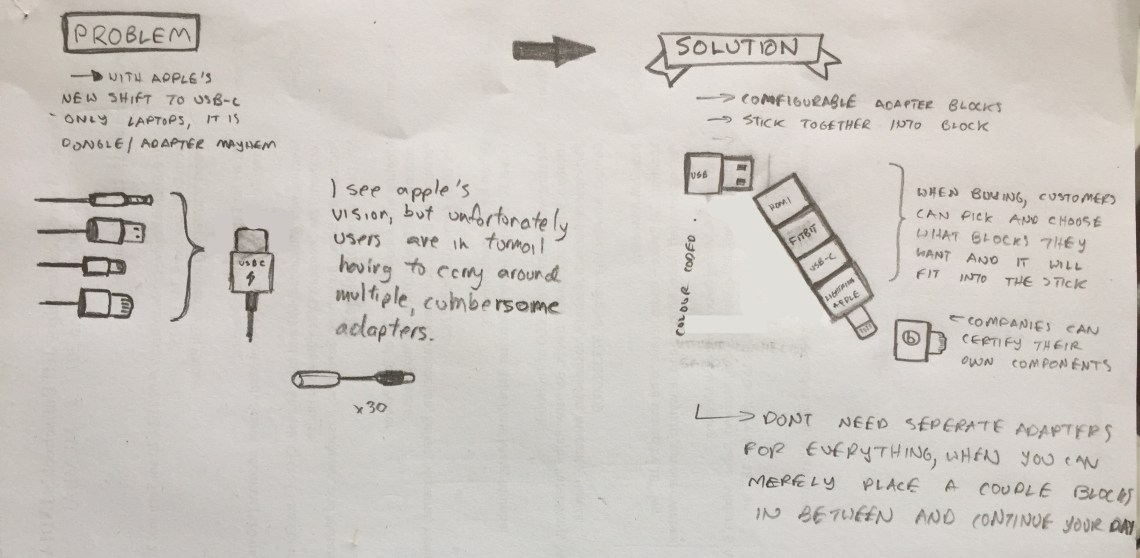 PROBLEM
WITH APPLE'S
NEW SHIFT TO USB-C
ONLY LAPTOPS, IT IS
DONGLE/ADAPTER MAYHEM
USBC
I see apple's
vision, but unfortunately
users are in turmoil
having to carry around
multiple, cumbersome
adapters.
x30
SOLUTION
CONFIGURABLE ADAPTER BLOCKS
STICK TOGETHER INTO BLOCK
USB
HDMI
FITBIT
USB-C
LIGHTNING
APPLE
COLOUR CODED.
WHEN BUYING, CUSTOMERS
CAN PICK AND CHOOSE
WHAT BLOCKS THEY
WANT AND IT WILL
FIT INTO THE STICK
b
COMPANIES CAN
CERTIFY THEIR
OWN COMPONENTS
DONT NEED SEPERATE ADAPTERS
FOR EVERYTHING, WHEN YOU CAN
MERELY PLACE A COUPLE BLOCKS
IN BETWEEN AND CONTINUE YOUR DAY